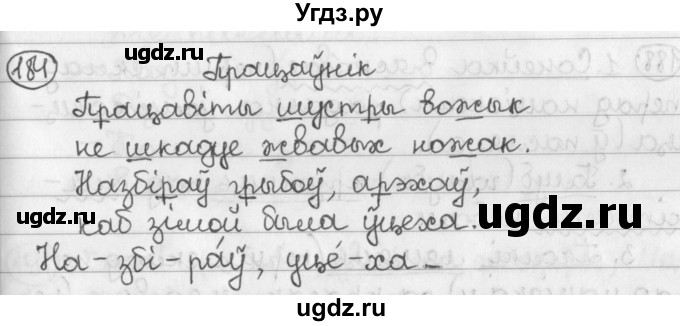 Угдз.ру
181
Працаўнік
Працавіты шустры вожык
не шкадуе жвавых ножак.
Назбіраў грыбоў, арэхаў,
каб зімой была ўцеха.
На-збі-ра́ў, уце́-ха
ugdz.ru
ugdz.ru
ugdz.ru
ugdz.ru
ugdz.ru
ugdz.ru
ugdz.ru